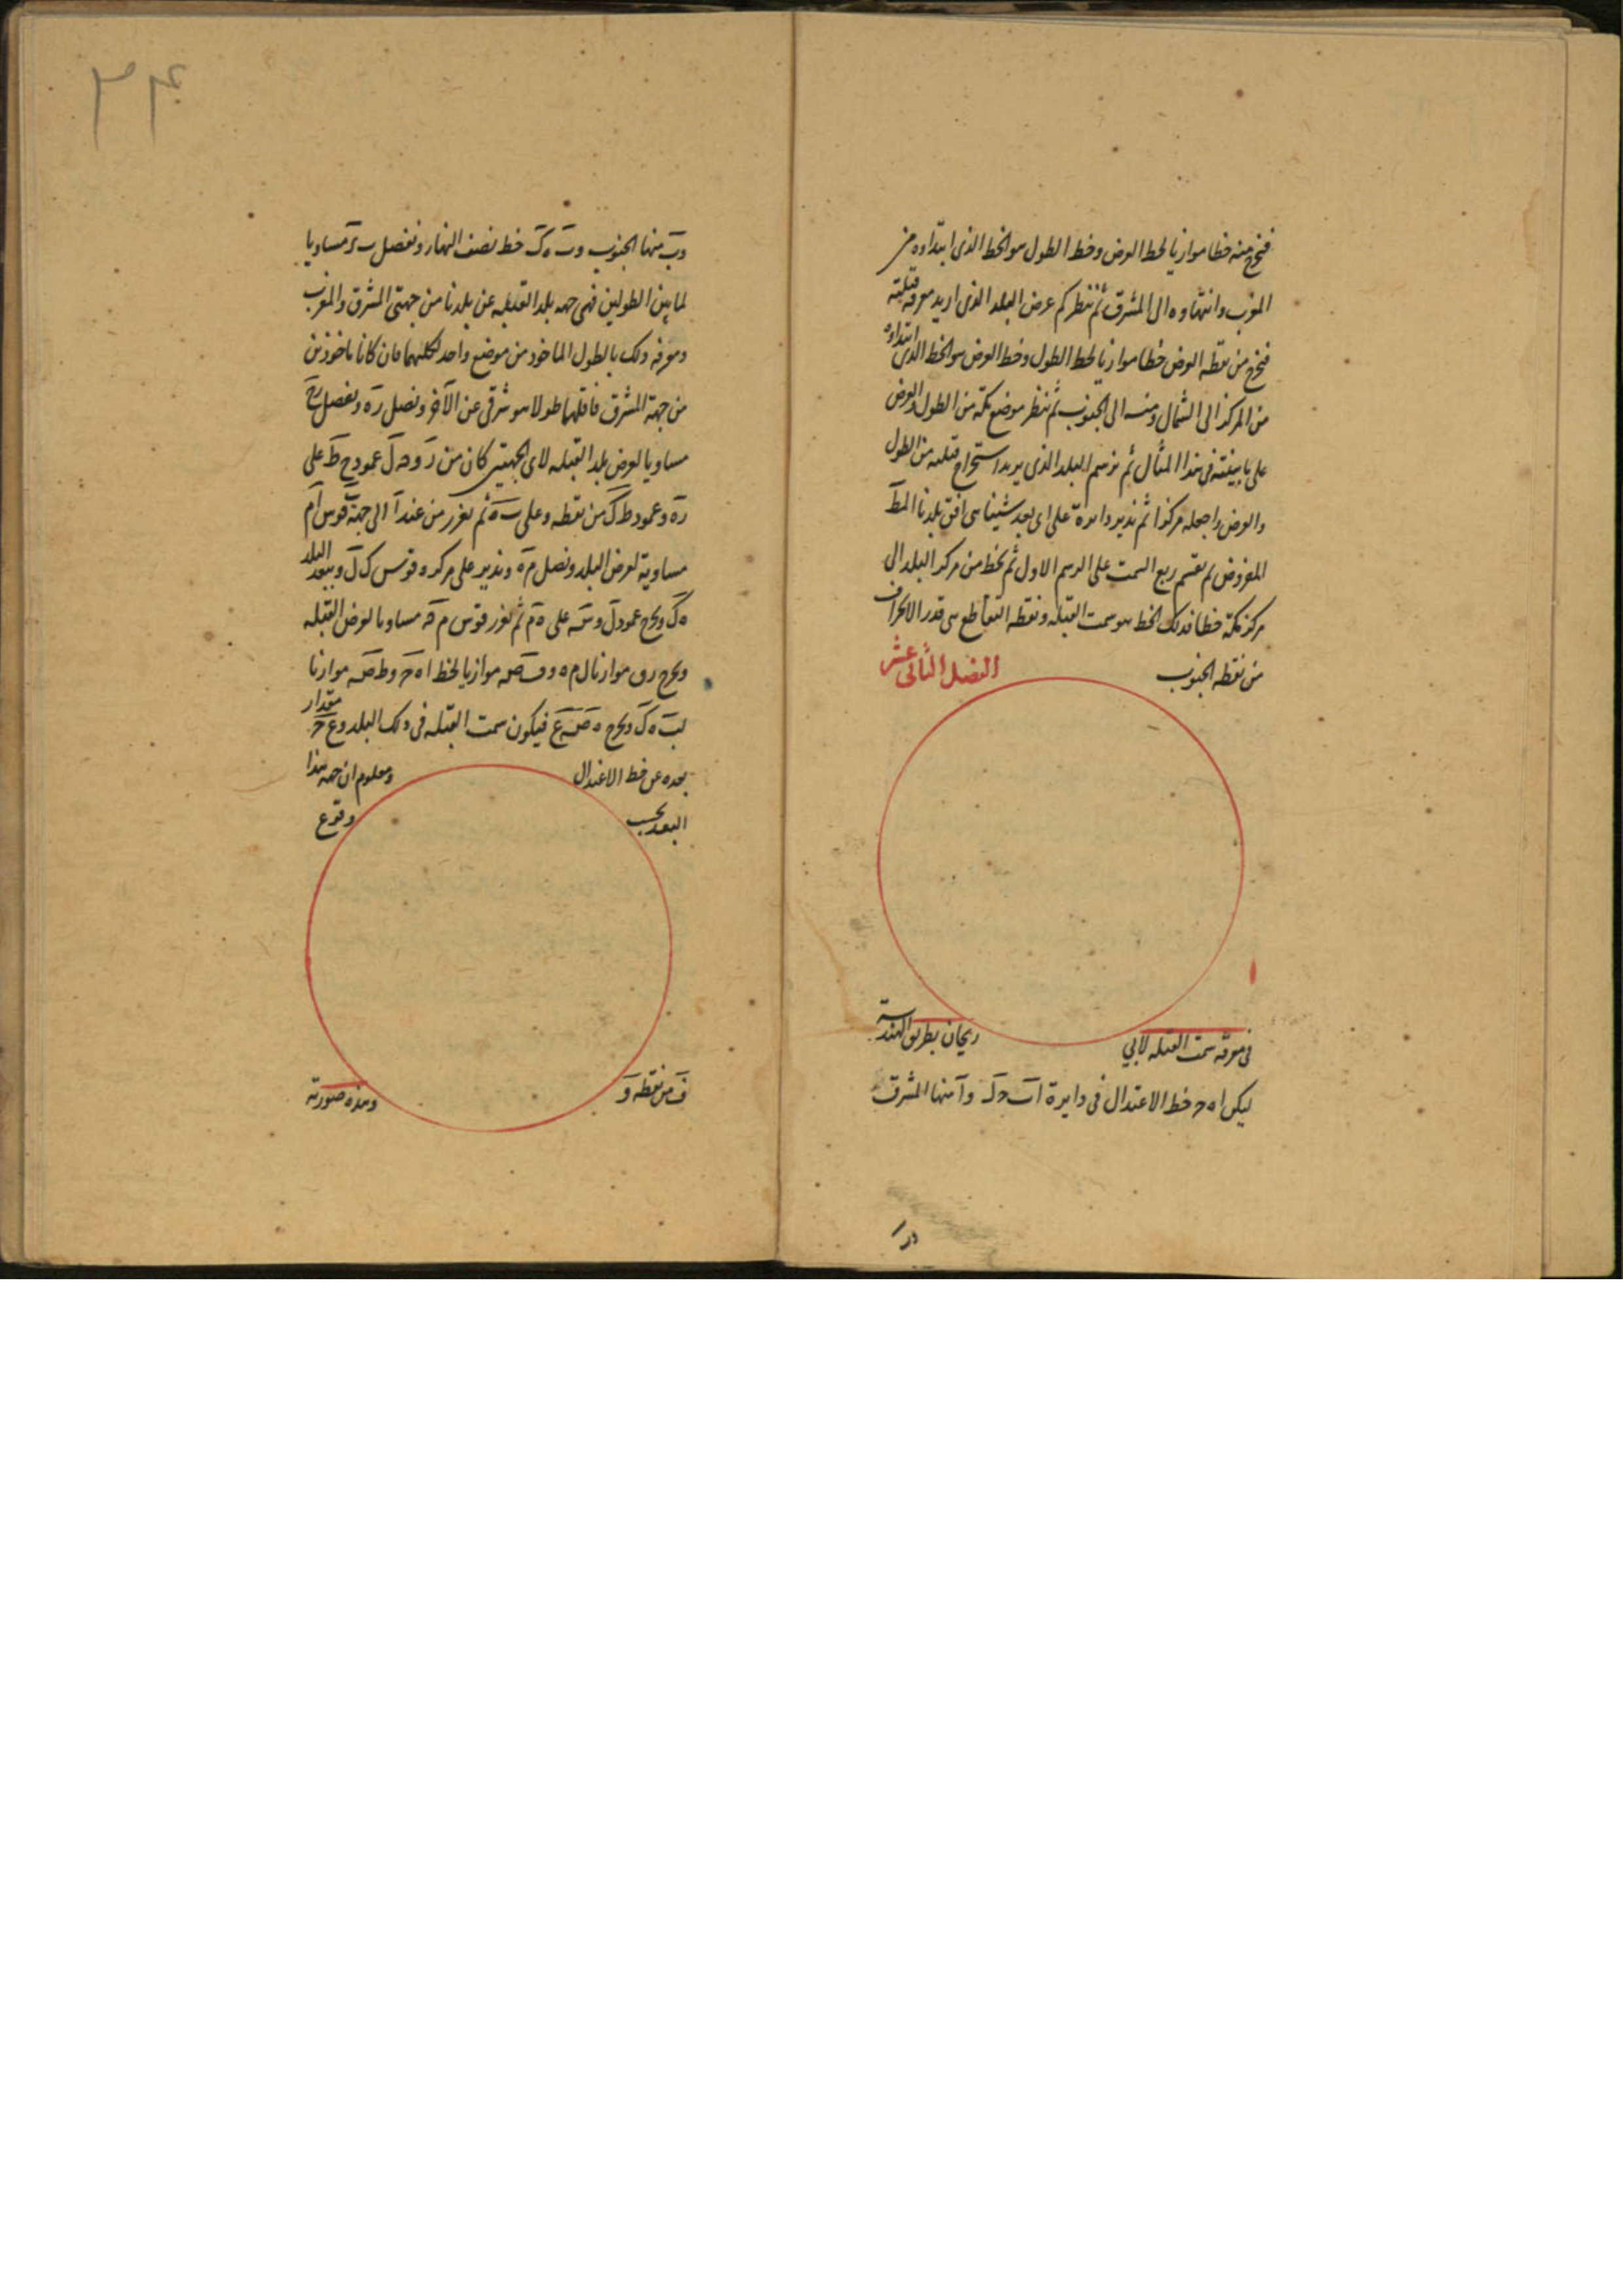 فنخرج منه خطا موازيا لخط العرض وخط الطول هو الخط الذى ابتداوه من
المغرب وانتهاوه الى المشرق ثم ننظر كم عرض البلد الذى اريد معرفة قبلته
فنخرج من نقطه العرض خطا موازيا لخط الطول وخط العرض هو الخط الذى ابتداوه
من المركز الى الشمال ومنه الى الجنوب ثم ننظر موضع مكة من الطول والعرض
على ما بينته فى هذا المثال ثم نرسم البلد الذى يريد استخراج قبلته من الطول
والعرض واجعله مركزا ثم ندير دائرة على اى بعد شينا هى افق بلدنا
المفروض ثم نقسم ربع السمت على الرسم الاول ثم نخط من مركز البلد الى
مركز مكة خطا فذلك الخط هو سمت القبلة ونقطه التقاطع هى قدر الانحراف
من نقطه الجنوب
الفصل الثانى عشر
فى معرفة سمت القبله لابي ريحان بطريق الهندسة
ليكن اه ح خط الاعتدال فى دايرة ا ب ح د و ا منها المشرق
٣٤
و ب منها الجنوب و ب ه ك خط نصف النهار ونفصل ب ر مساويا
لما بين الطولين فهى جهه بلد القبله عن بلدنا من جهتى المشرق والمغرب
ومعرفه ذلك بالطول الماخوذ من موضع واحد لكليهما فان كانا ماخوذين
من جهة المشرق فاقلهما طولا هو شرقى عن الآخر ونصل ره ونفصل رح
مساويا لعرض بلد القبله لاى الجهتين كان من ر و عمود ح ط على
ره وعمود ط ك من نقطه وعلى ب ه ثم نفرز من عند ا الى جهة ب قوس ا م
مساوية لعرض البلد ونصل م ه وندير على مركز ه قوس ك ل وببعد
ه ك ونخرج عمود ل و س على ه م ثم نفرز قوس م ف مساويا لعرض القبله
ونخرج موازيا ل م ه و ف ص موازيا لخط اه ح و ط ص موازيا
لب ه ك ونخرج ه ص ع فيكون سمت القبله فى ذلك البلد و ع ح مقدار
بعده عن خط الاعتدال ومعلوم ان جهه هذا
البعد بحسب وقوع
ف من نقطه و وهذه صورته